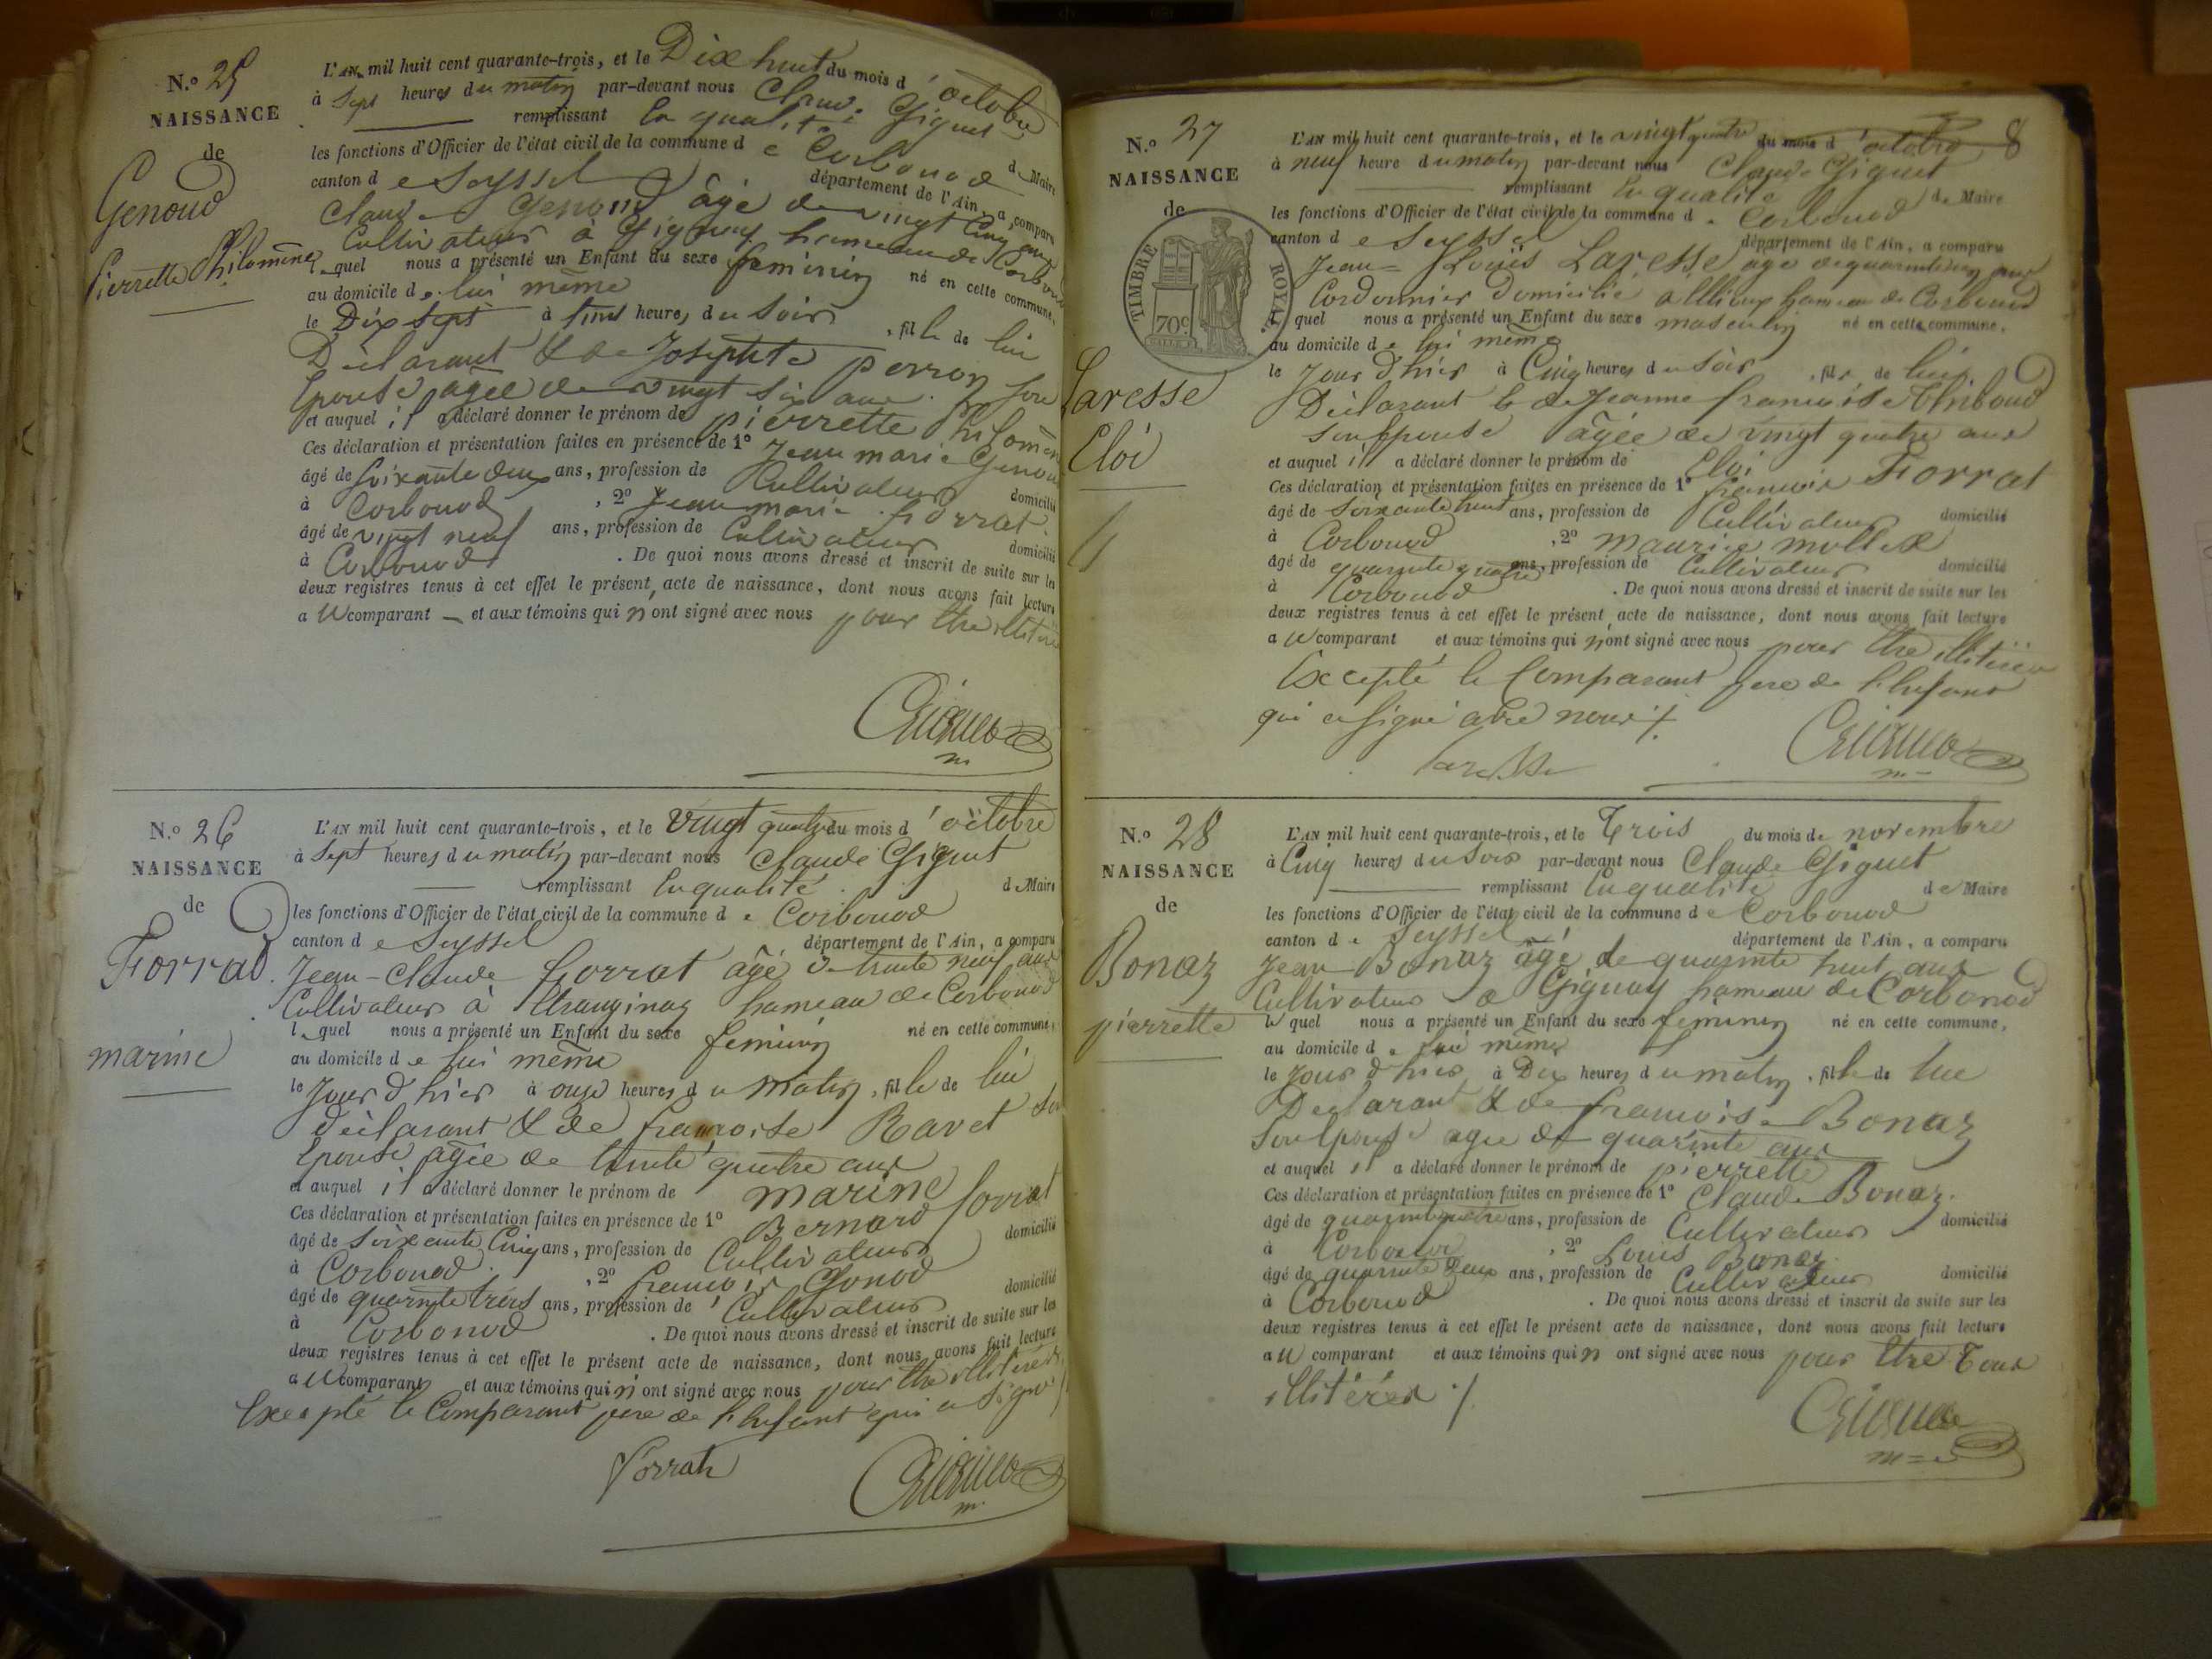 N.º 25
NAISSANCE
de
Genoud
Pierrette Philomène
L'AN mil huit cent quarante-trois, et le Dix huit du mois d'octobre
à Sept heures du matin par-devant nous Claude Giguet
remplissant en qualité de Maire
les fonctions d'Officier de l'état civil de la commune de Corbonod
canton de Seyssel département de l'Ain, a comparu
Claude Genoud âgé de vingt cinq ans
Cultivateur à Gignay hameau de Corbonod
lequel nous a présenté un Enfant du sexe feminin né en cette commune,
au domicile de lui même
le Dix Sept à heures du Soir, fille de lui
Déclarant & de Josephte perron son
Epouse agée de vingt six ans
et auquel il a déclaré donner le prénom de pierrette Philomène
Ces déclaration et présentation faites en présence de 1º Jean marie Genoud
âgé de Soixante deux ans, profession de Cultivateur domicilié
à Corbonod, 2º Jean marie forrat
âgé de vingt neuf ans, profession de Cultivateur domicilié
à Corbonod. De quoi nous avons dressé et inscrit de suite sur les
deux registres tenus à cet effet le présent acte de naissance, dont nous avons fait lecture
au comparant et aux témoins qui n'ont signé avec nous pour être illitérés
Giguet
m
N.º 26
NAISSANCE
de
Forrat
marine
L'AN mil huit cent quarante-trois, et le vingt quatre du mois d'octobre
à Sept heures du matin par-devant nous Claude Giguet
remplissant En qualité de Maire
les fonctions d'Officier de l'état civil de la commune de Corbonod
canton de Seyssel département de l'Ain, a comparu
Jean-Claude forrat âgé de trente neuf ans
Cultivateur à Etranginaz hameau de Corbonod
lequel nous a présenté un Enfant du sexe feminin né en cette commune,
au domicile de lui même
le Jour d'hier à onze heures du matin, fille de lui
déclarant & de françoise Ravet son
Epouse âgée de trente quatre ans
et auquel il a déclaré donner le prénom de marine
Ces déclaration et présentation faites en présence de 1º Bernard forrat
âgé de soixante Cinq ans, profession de Cultivateur domicilié
à Corbonod, 2º francois Gonod
âgé de quarante trois ans, profession de Cultivateur domicilié
à Corbonod. De quoi nous avons dressé et inscrit de suite sur les
deux registres tenus à cet effet le présent acte de naissance, dont nous avons fait lecture
au comparant et aux témoins qui n'ont signé avec nous pour être illitérés
Excepté le Comparant père de l'Enfant qui a Signé
Forrat
Giguet
m
8
N.º 27
NAISSANCE
de
TIMBRE ROYAL
70c
Laresse
Eloi
L'AN mil huit cent quarante-trois, et le vingt quatre du mois d'octobre
à neuf heure du matin par-devant nous Claude Giguet
remplissant En qualité de Maire
les fonctions d'Officier de l'état civil de la commune de Corbonod
canton de Seyssel département de l'Ain, a comparu
Jean-Louis Laresse agé de ans
Cordonnier domicilié hameau de Corbonod
quel nous a présenté un Enfant du sexe masculin né en cette commune,
au domicile de lui même
le Jour d'hier à Cinq heures du Soir, fils de lui
Déclarant & de Jeanne francoise
son Epouse âgée de vingt quatre ans
et auquel il a déclaré donner le prénom de Eloi
Ces déclaration et présentation faites en présence de 1º francois Forrat
âgé de Soixante huit ans, profession de Cultivateur domicilié
à Corbonod, 2º maurice mollex
âgé de quarante quatre ans, profession de Cultivateur domicilié
à Corbonod. De quoi nous avons dressé et inscrit de suite sur les
deux registres tenus à cet effet le présent acte de naissance, dont nous avons fait lecture
au comparant et aux témoins qui n'ont signé avec nous pour être illitérés
Excepté le Comparant pere de l'Enfant
qui a signé avec nous
Laresse
Giguet
m
N.º 28
NAISSANCE
de
Bonaz
pierrette
L'AN mil huit cent quarante-trois, et le Trois du mois de novembre
à Cinq heures du Soir par-devant nous Claude Giguet
remplissant En qualité de Maire
les fonctions d'Officier de l'état civil de la commune de Corbonod
canton de Seyssel département de l'Ain, a comparu
Jean Bonaz âgé de quarante huit ans
Cultivateur à Gignay hameau de Corbonod
lequel nous a présenté un Enfant du sexe feminin né en cette commune,
au domicile de lui même
le Jour d'hier à Dix heures du matin, fille de lui
Declarant & de francoise Bonaz
Son Epouse agée de quarante ans
et auquel il a déclaré donner le prénom de pierrette
Ces déclaration et présentation faites en présence de 1º Claude Bonaz
âgé de quarante quatre ans, profession de Cultivateur domicilié
à Corbonod, 2º Louis Bonaz
âgé de quarante deux ans, profession de Cultivateur domicilié
à Corbonod. De quoi nous avons dressé et inscrit de suite sur les
deux registres tenus à cet effet le présent acte de naissance, dont nous avons fait lecture
au comparant et aux témoins qui n'ont signé avec nous pour être Tous
illitérés
Giguet
m